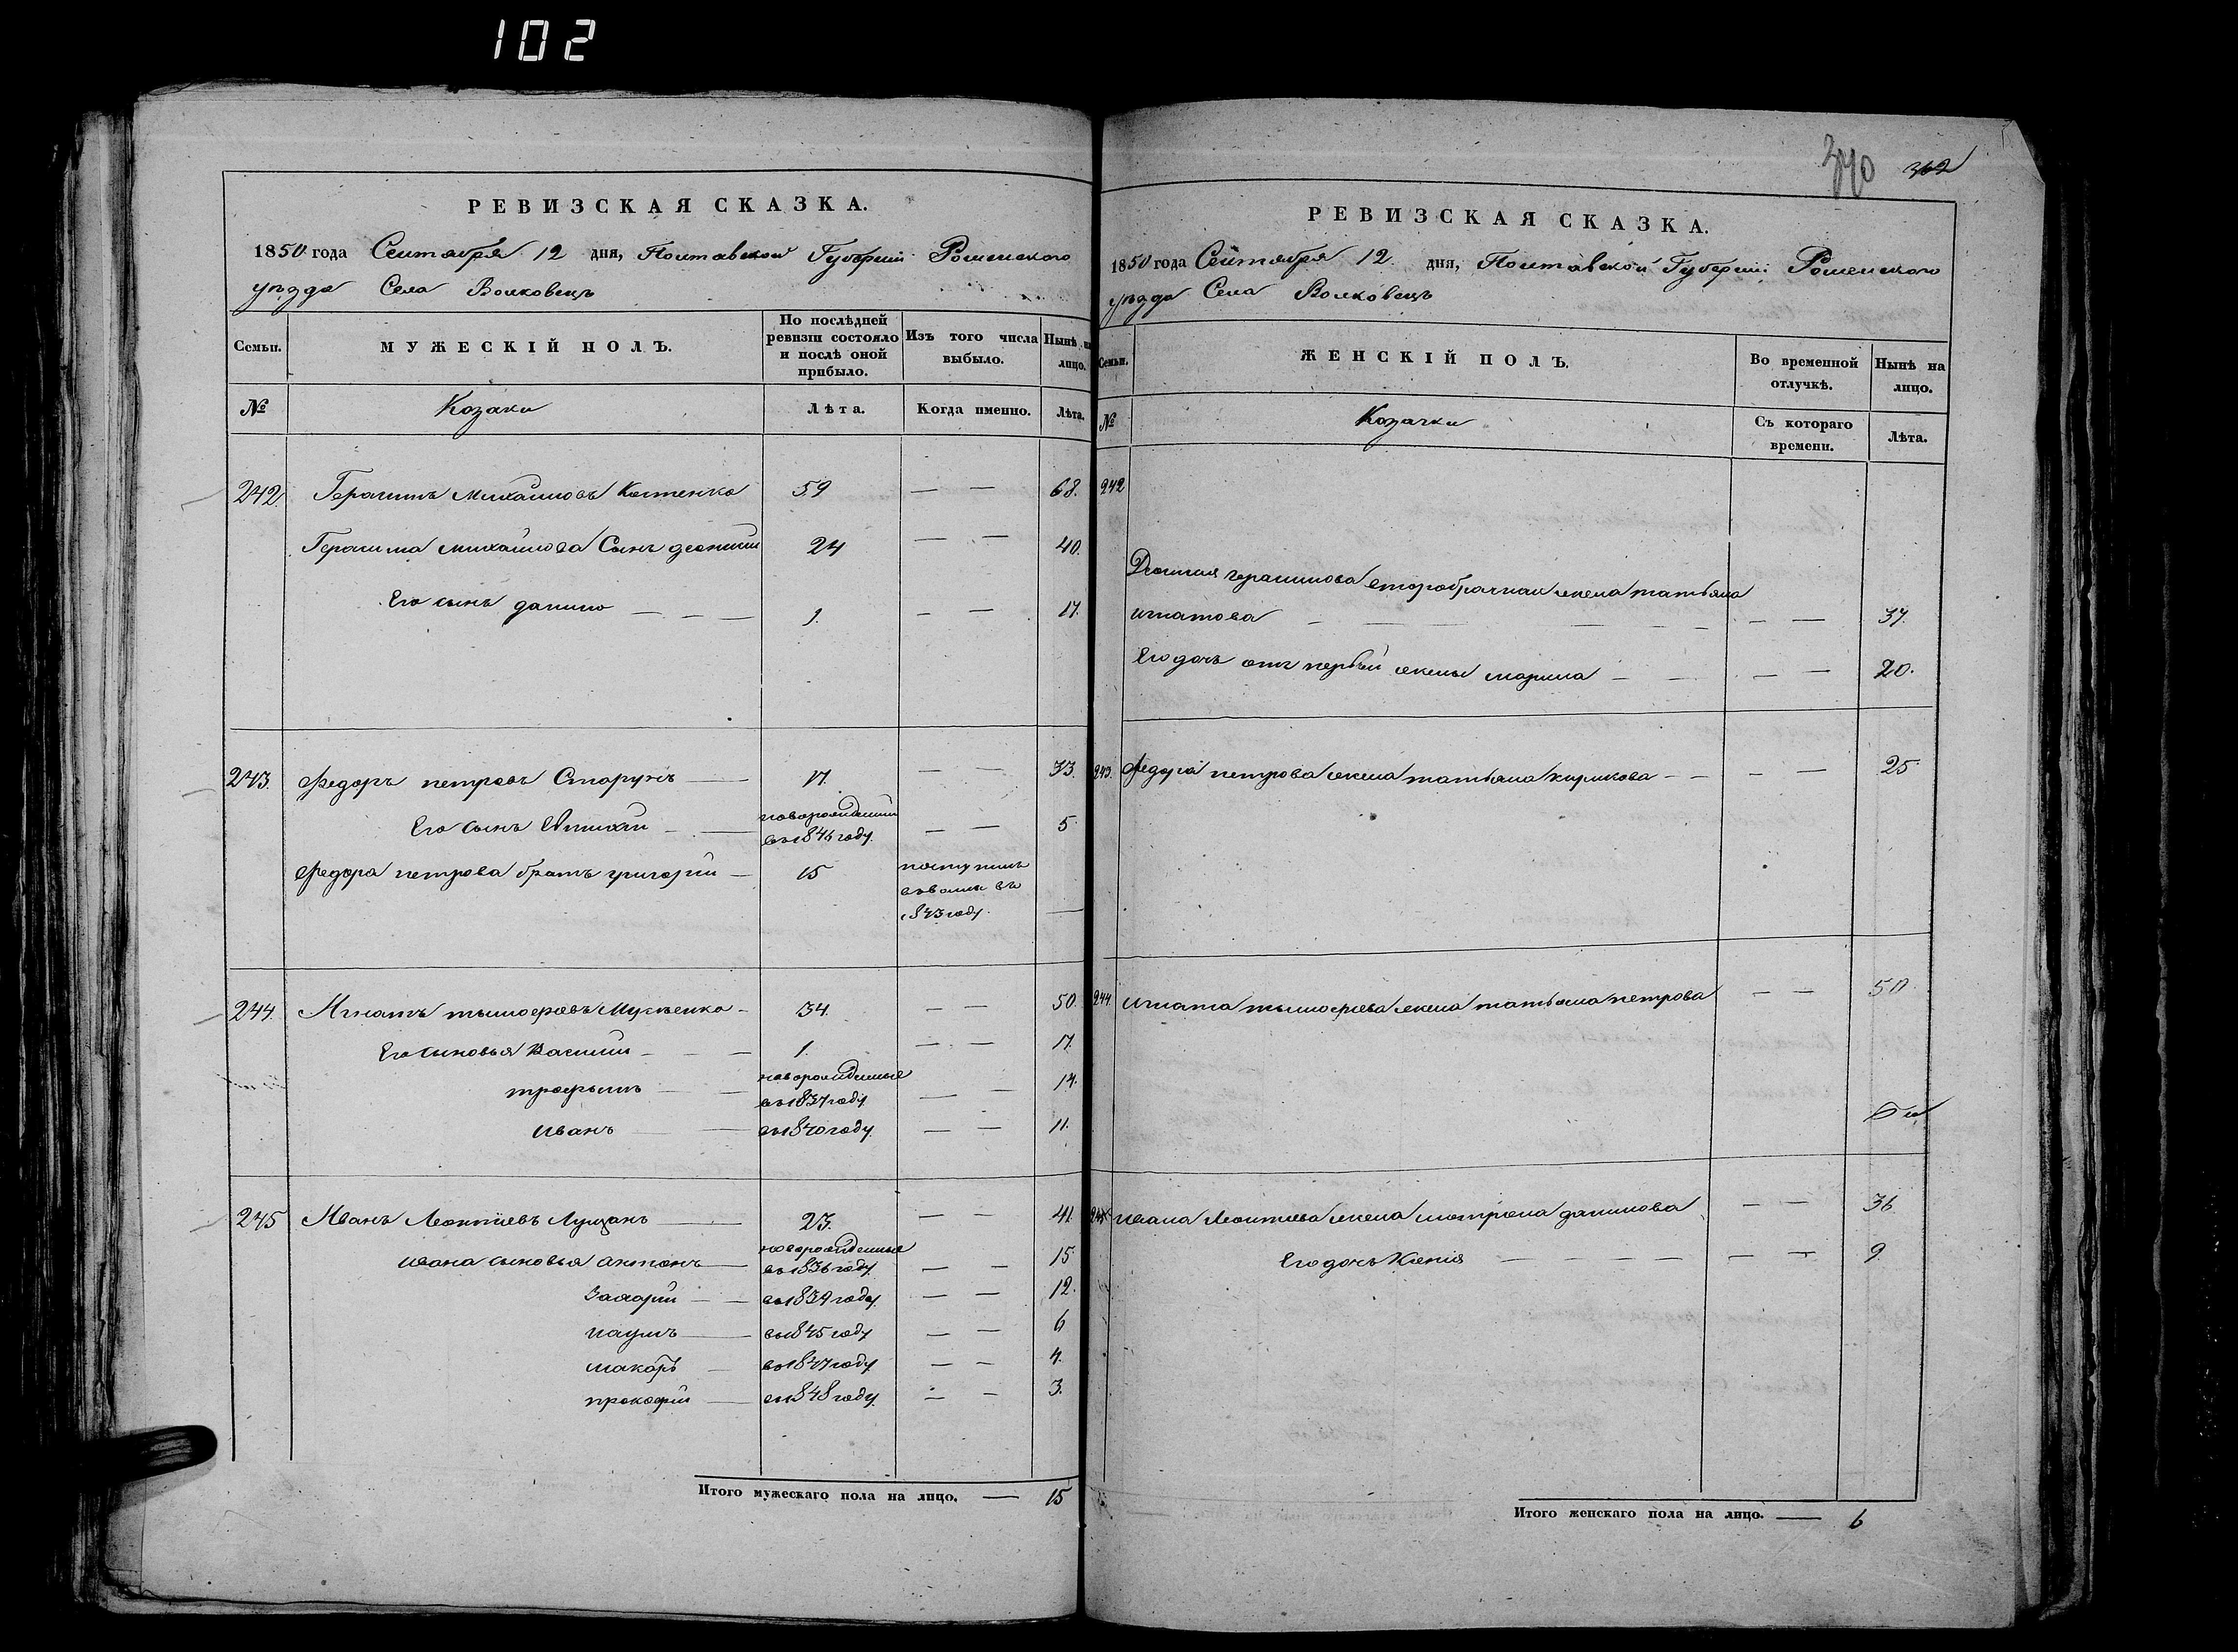 102
РЕВИЗСКАЯ СКАЗКА.
1850 года Сентября 12 дня, Полтавской Губернии Роменского
уѣзда Села Волковецъ
Семьи.
МУЖЕСКІЙ ПОЛЪ.
По послѣдней ревизіи состояло и послѣ оной прибыло.
Изъ того числа выбыло.
Нынѣ на лицо.
№ Козаки Лѣта. Когда именно. Лѣта.
242. Герасимъ Михайловъ Костенко 59 — — 68.
Герасима Михайлова Сынъ 24 — — 40.
Его сынъ данило — — — 1. — — 17.
243. Федоръ петровъ Старунъ — 17. — — 33.
Его Сынъ — — новорожденный
въ 1846 году. — — 5
Федора петрова братъ григорій — 15 поступилъ
въ
1843 году. —
244. Игнатъ тимофѣевъ — 34. — — 50.
Его сыновья Василий — — — 1. — — 17.
трофимъ — — новорожденные
въ 1837 году — — 14.
иванъ — — въ 1840 году. — — 11.
245 Иванъ Леонтіевъ Лущанъ — — 23. — — 41.
ивана сыновья антонъ — новорожденные
въ 1836 году. — — 15
Захарій — — въ 1839 году. — — 12.
наумъ — въ 1845 году — — 6
макаръ — въ 1847 году — — 4.
прокофій — въ 1848 году. — — 3.
Итого мужескаго пола на лицо. — 15
340 362
РЕВИЗСКАЯ СКАЗКА.
1850 года Сентября 12 дня, Полтавской Губерніи Роменского
уѣзда Села Волковецъ
Семьи.
ЖЕНСКІЙ ПОЛЪ.
Во временной отлучкѣ.
Нынѣ на лицо.
№ Козачки Съ котораго времени. Лѣта.
242
герасимова второбрачная жена татьяна
игнатова — — — — — — — 37.
Его дочъ отъ первой жены марина — — — — 20.
243. Федора петрова жена татьяна кирикова — — — — 25
244 игната тимофѣева жена татьяна петрова — — 50.
245 ивана Леонтіева жена мотрона данилова — — 36
Его дочъ Ксенія — — — — — — 9.
Итого женскаго пола на лицо. — 6